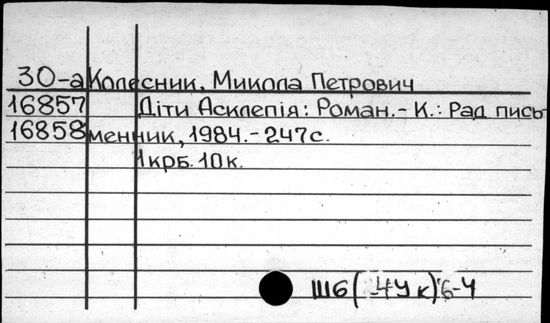 30-а Колесник, Микола Петрович
16857 Діти Асклепія: Роман.- К.: Рад пись
16858 менник, 1984.- 247с.
1крб. 10к.
Ш6( 4Ук)6-4